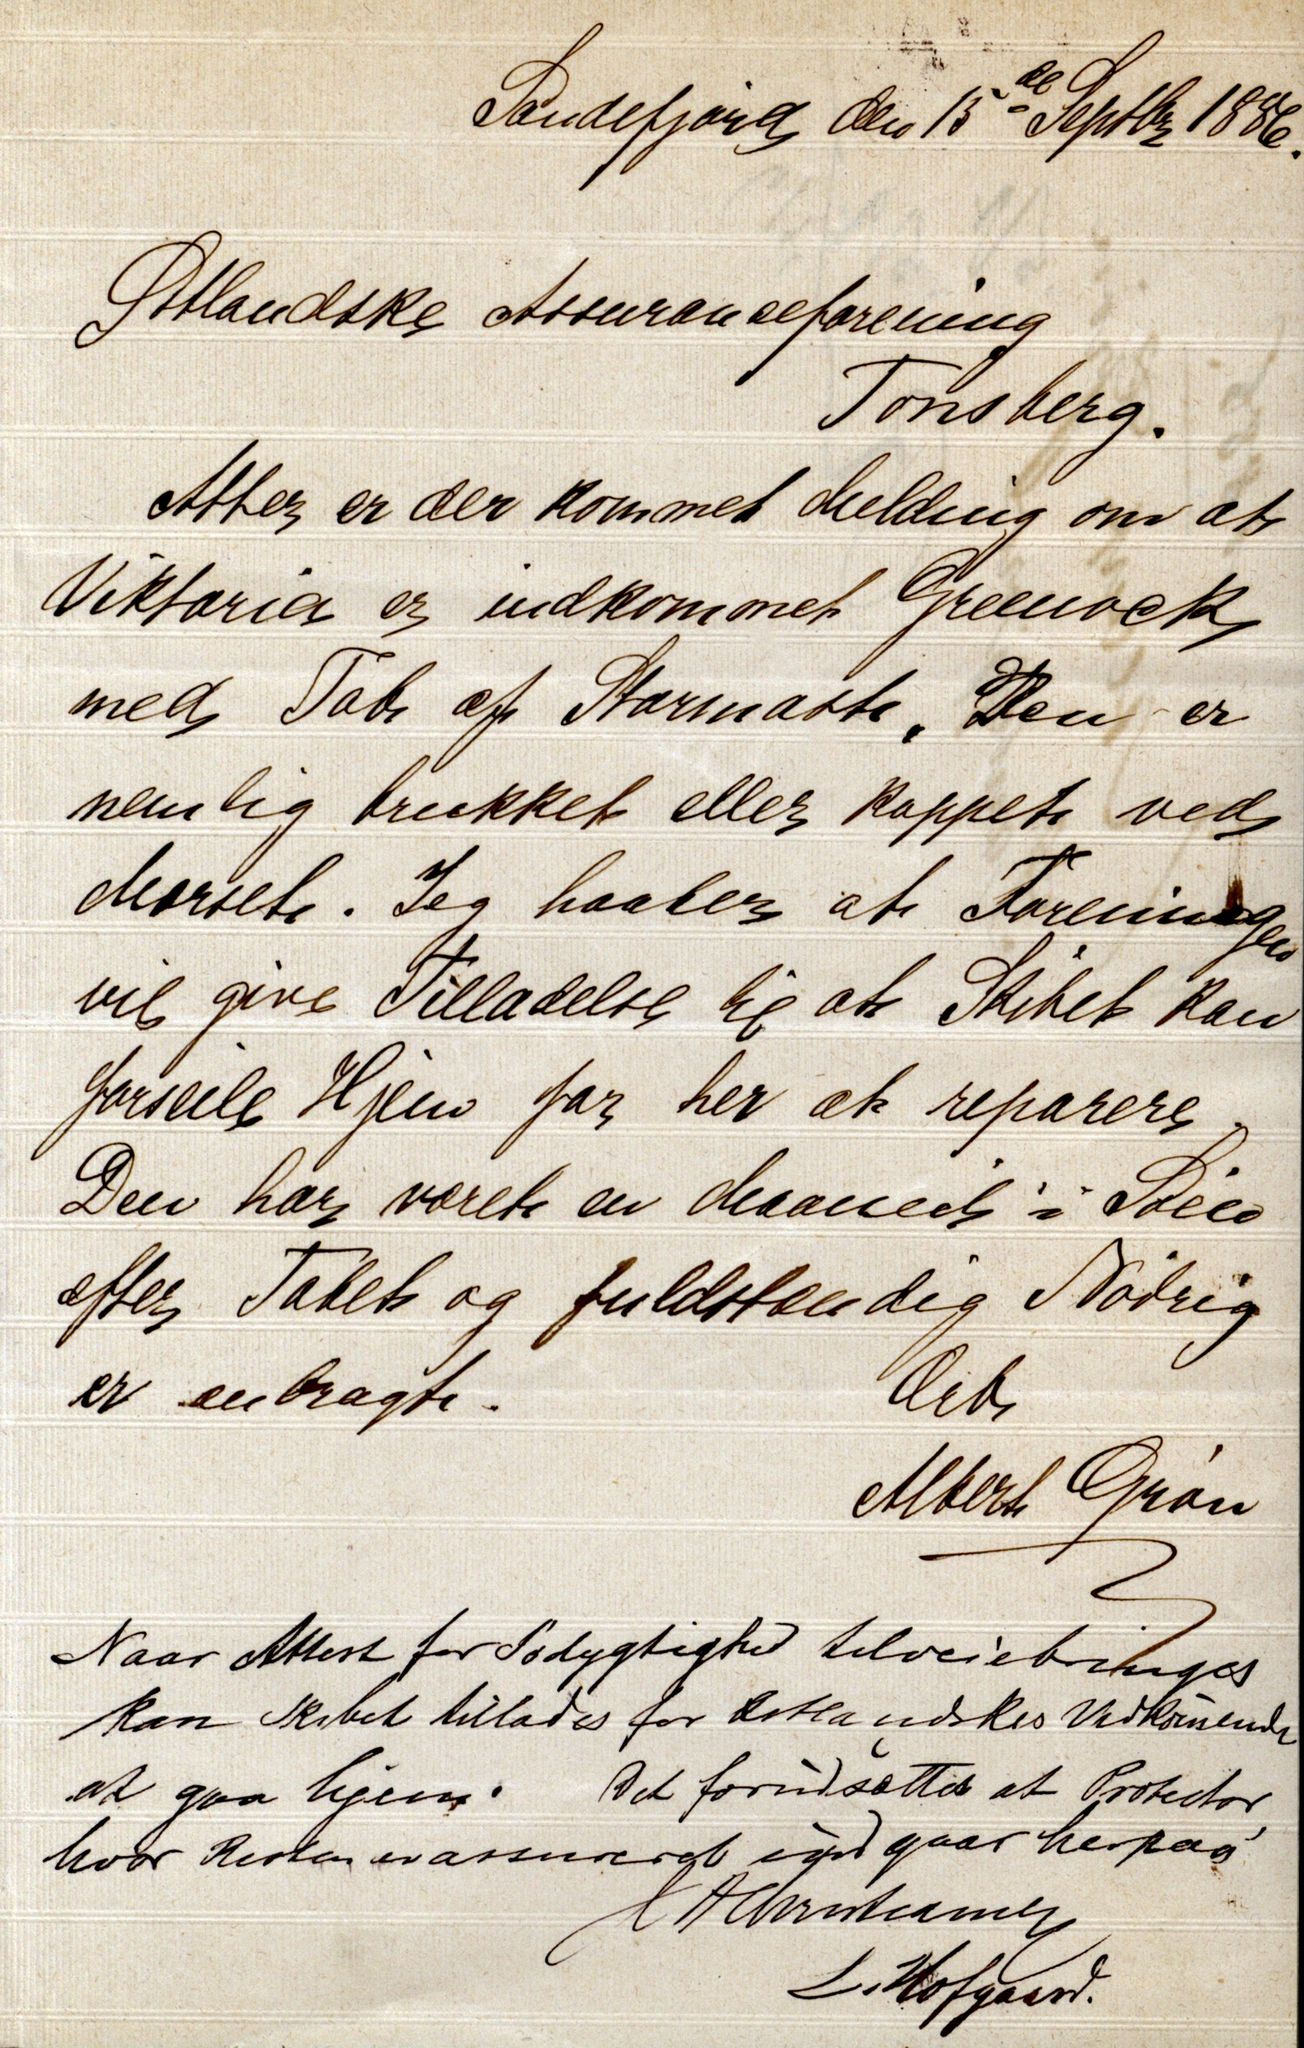 Sandefjord den 15de Septbr 1886.
Østlandske Assuranceforening
Tonsberg.
Atter er der kommet Melding om at
Viktoria er indkommet Greenock
med Tab af Stormast. Den er
nemlig brukket eller kappet ved
Merset. Jeg haaber at Foreningen
vil give Tilladelse til at Skibet kan
forseile Hjem for her at reparere.
Den har været en Maaned i Söen
efter Tabet og fuldstændig Nödrig
er anbragt.
Ærb
Albert Grøn
Naar Attest for Södygtighed tilveiebringes
kan Skibet tillades for Østlandskes Vedkommende
at gaa hjem. Det forudsættes at Protector
hvor Resten er assureret indgaar herpaa
Christiansen
L. Hofgaard.